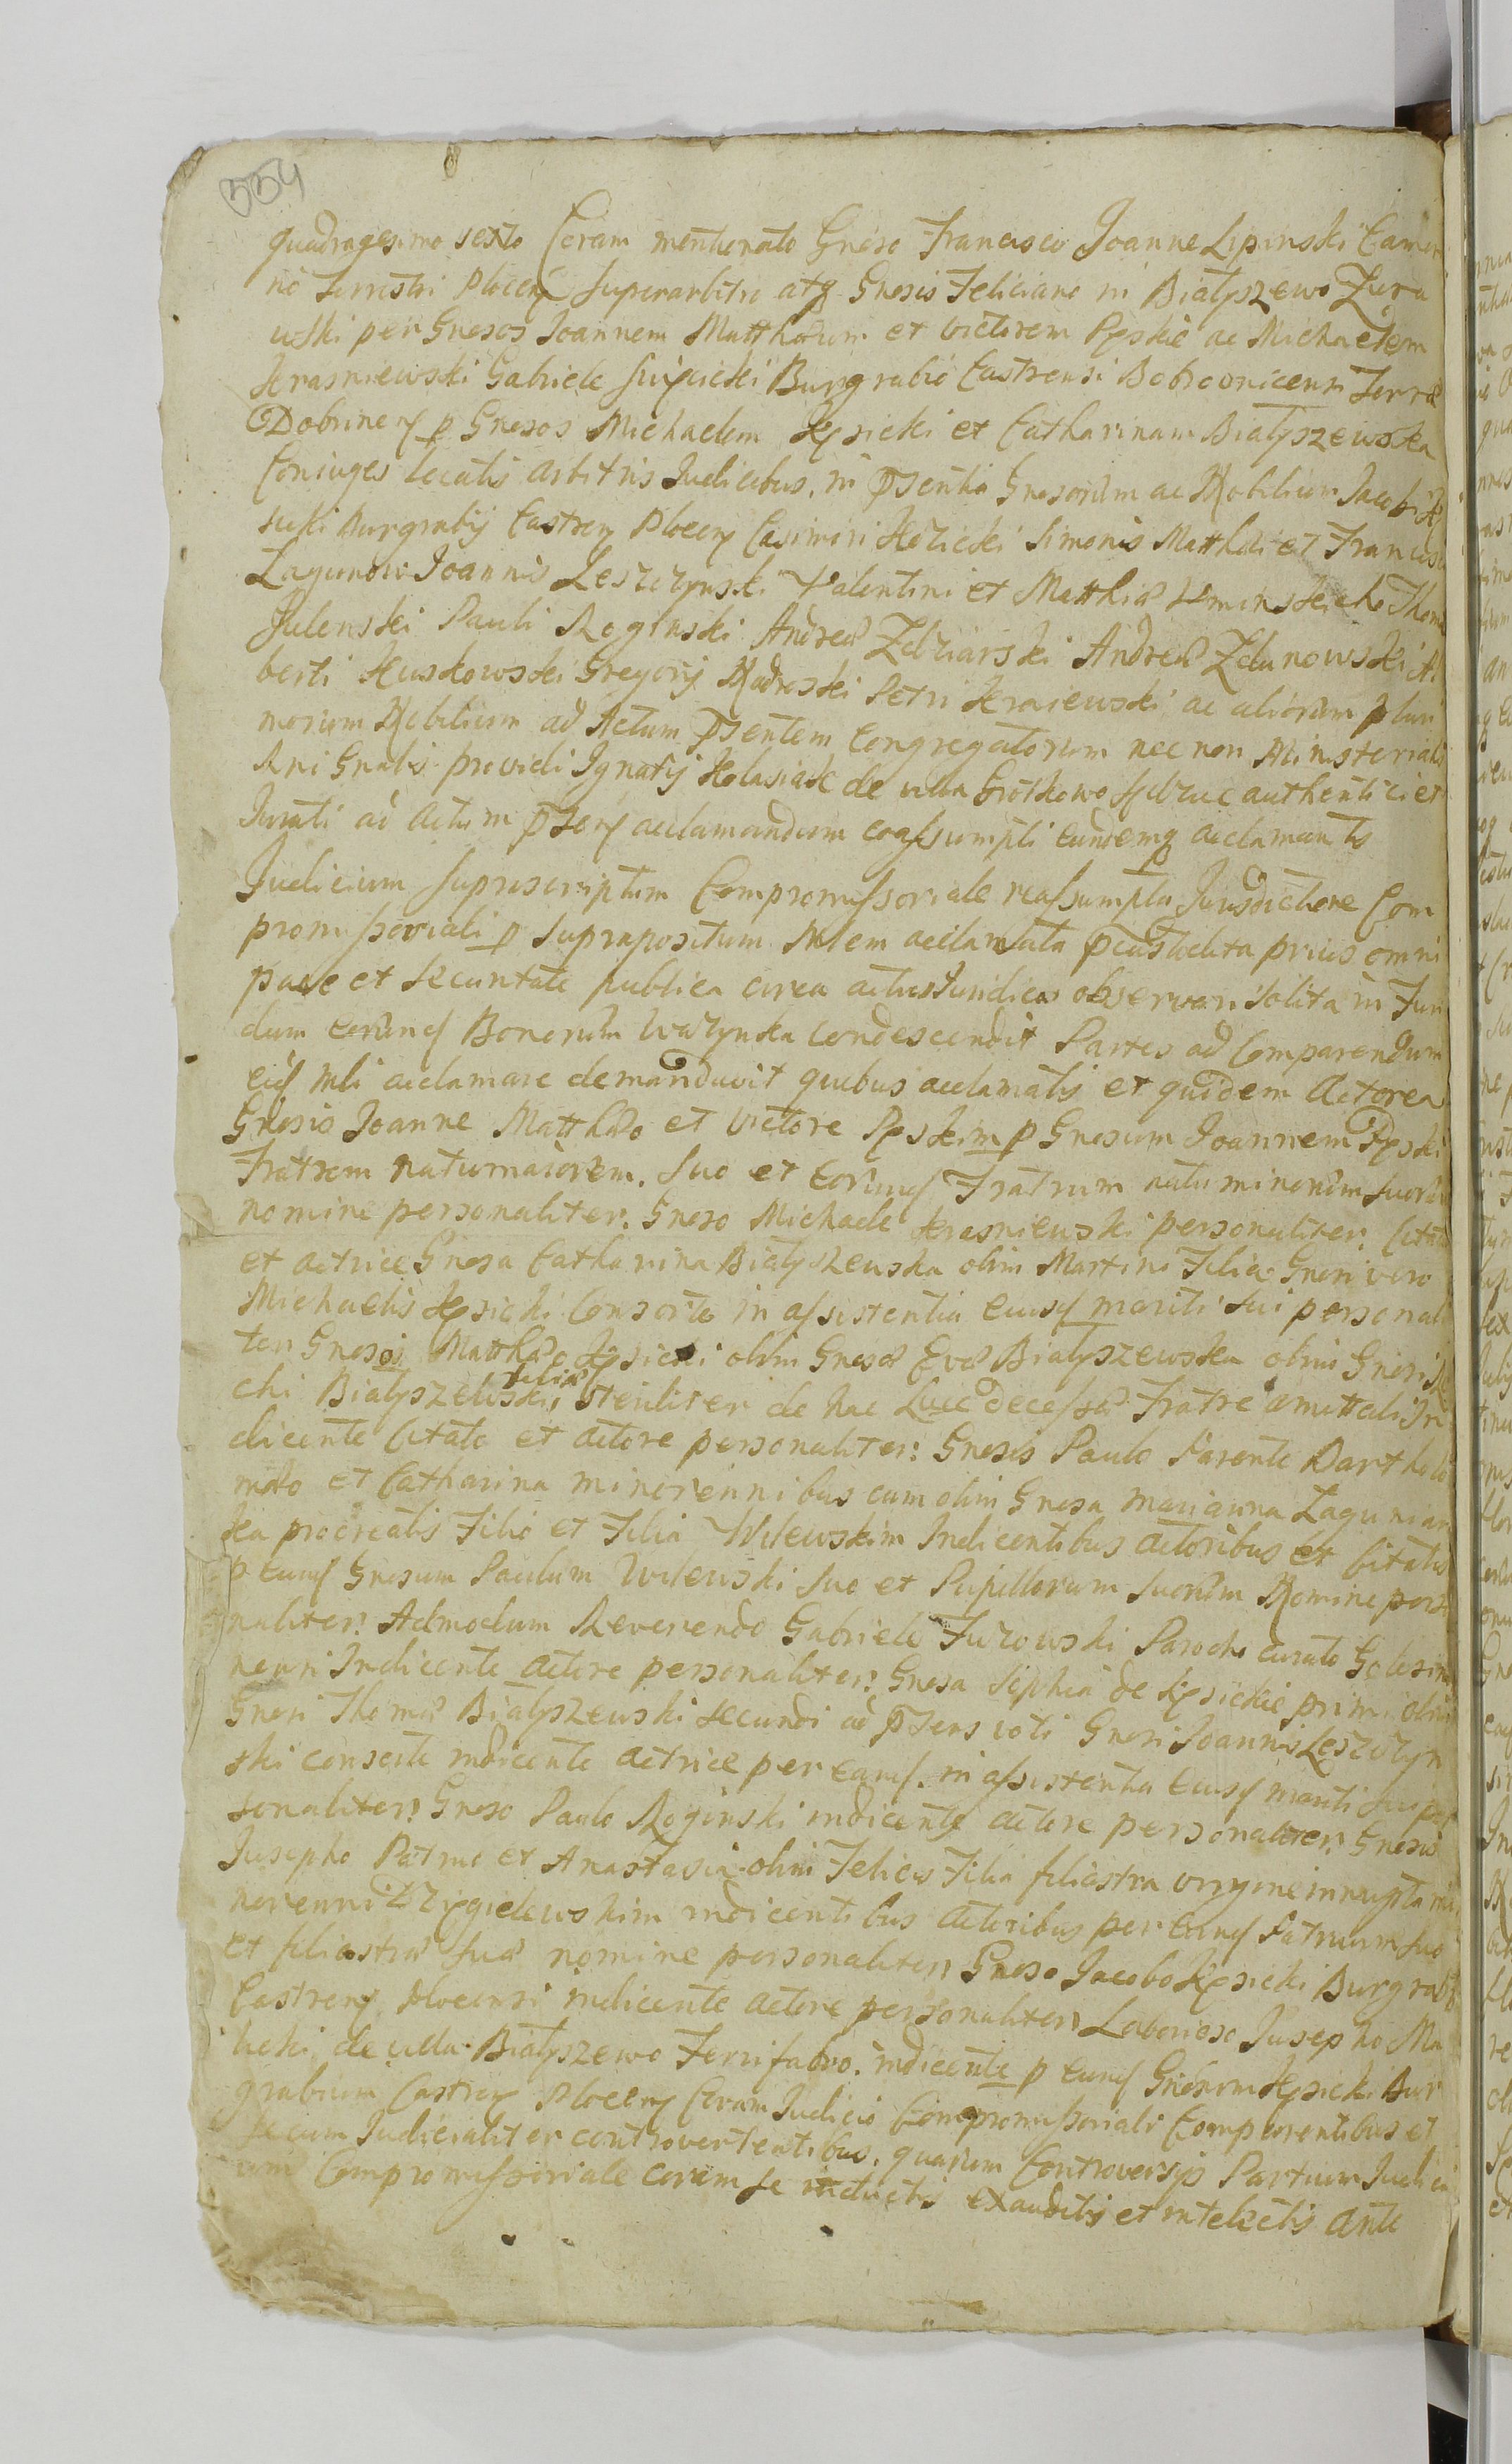 554
quadragesimo sexto Coram mentionato Gnoso Francisco Joanne Lipinski Camer
rio Terrestri Plocen Superarbitro atq Gnosis Feliciano in Białyszewo Zura
wski per Gnosos Joannem Matthæum et Victorem Pęskie ac Michaelem
Krasniewski Gabriele Święcicki Burgrabio Castrensi Bobrovnicensi Terræ
Dobrinen p Gnosos Michaelem Kęsicki et Catharinam Białyszewska
Coniuges locatis arbitris Judicibus, in psentia Gnosorum ac Nobilium Jacobi Kę
sicki Burgrabij Castren Plocen Casimiri Kozicki Simonis Matthæi et Francisci
Lagunow Joannis Leszczynski Valentini et Matthiæ Uminskich Thomæ
Sulenski Pauli Roginski Andreæ Zdziarski Andreæ Zdunowski Al
berti Kuskowski Gregorij Nadroski Petri Kraiewski ac aliorum pluri
morum Nobilium ad Actum psentem congregatorum nec non Ministerialis
Rni Gnalis providi Ignatij Kolasiak de villa Srotkowo authentici et
Jurati ad actum psen acclamandum coassumpti eundemq acclamantis
Judicium suprascriptum Compromissoriale reassumpta Jurisdictione Com
promissoriali p suprapositum Mlem acclamata pcustodita prius omni
pace et securitate publica circa actus Juridicos observari solita in Fun
dum eorund Bonorum Warzynka condescendit Partes ad Comparendum
eid Mli acclamare demandavit quibus acclamatis et quidem Actorea
Gnosis Joanne Matthæo et Victore Pęskim p Gnosum Joannem Pęski
Fratrem natumaiorem. suo et eorund Fratrum natu minorum suorum
nomine personaliter. Gnoso Michaele Krasniewski personaliter. Citata
et actrice Gnosa Catharina Białyszewska olim Martini Filia Gnosi vero
Michaelis Kęsicki Consorte in assistentia eiusd mariti sui personali
ter Gnoso Matthæo Kęsicki olim Gnosæ Evæ Białyszewska olim Gnosi
chi Białyszewski filiæ steriliter de hac luce decessæ Fratre amittali In
dicente Citato et actore personaliter: Gnosis Paulo Parente Bartholo
mæo et Catharina minorennibus cum olim Gnosa Marianna Lagunian
ka procreatis Filio et Filia Wilewskim Indicentibus actoribus et Citatis
p Eund Gnosum Paulum Wilewski suo et Pupillorum suorum Nomine perso
naliter: Admodum Reverendo Gabriele Jurowski Parocho curato
nensi Indicente actore personaliter: Gnosa Sophia de Kęsickie primi olim
Gnosi Thomæ Białyszewski secundi ad psens voti Gnosi Joannis Leszczyn
ski consorte indicente actrice per eand in assistentia eiusd mariti sui per
sonaliter: Gnoso Paulo Roginski indicente actore personaliter: Gnosis
Josepho Patruo et Anastasia olim Felicis Filia filiastra virgine innupta mi
norenni Dzięgielewskim indicentibus actoribus per Eund Patruum suo
et filiastræ suæ nomine personaliter: Gnoso Jacobo Kęsicki Burgrabio
Castren Plocensi indicente actore personaliter: Laborioso Josepho Ma
licki de villa Białyszewo Ferrifabro. indicente p Eund Gnosum Kęsicki Bur
grabium Castren Plocen Coram Judicio Compromissoriali Comparentibus et
secum Judicialiter controvertentibus. quarum Controversijs Partium Judici
um Compromissoriale coram se inductis exauditis et intelectis ante